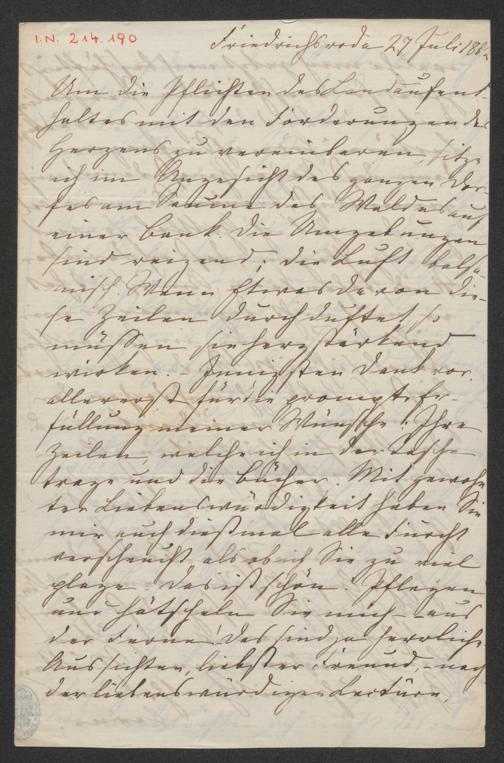 I.N. 214.190
Friedrichsroda 29 Juli 18
Um die Pflichten des Landaufent-
haltes mit den Forderungen des
Herzens zu vereinbaren, sitze
ich im Angesicht des ganzen Dor-
fes am Saume des Waldes auf
einer Bank. Die Umgebungen
sind reizend, die Luft balsa-
misch. Wenn Etwas davon die-
se Zeilen durchduftet so
müssen sie herzstärkend
wirken. Innigsten Dank vor
allererst für die prompte Er-
füllung meiner Wünsche! Ihre
Zeilen welche ich in der Tasche
trage und die Bücher. Mit gewohn-
ter Liebenswürdigkeit haben Sie
mir auch dießmal alle Furcht
verscheucht als ob ich Sie zu viel
plage. Das ist schön. Pflegen
und hätscheln Sie mich – aus
der Ferne! Das sind ja herrliche
Aussichten, liebster Freund, – nach
der liebenswürdigen Lectüre,